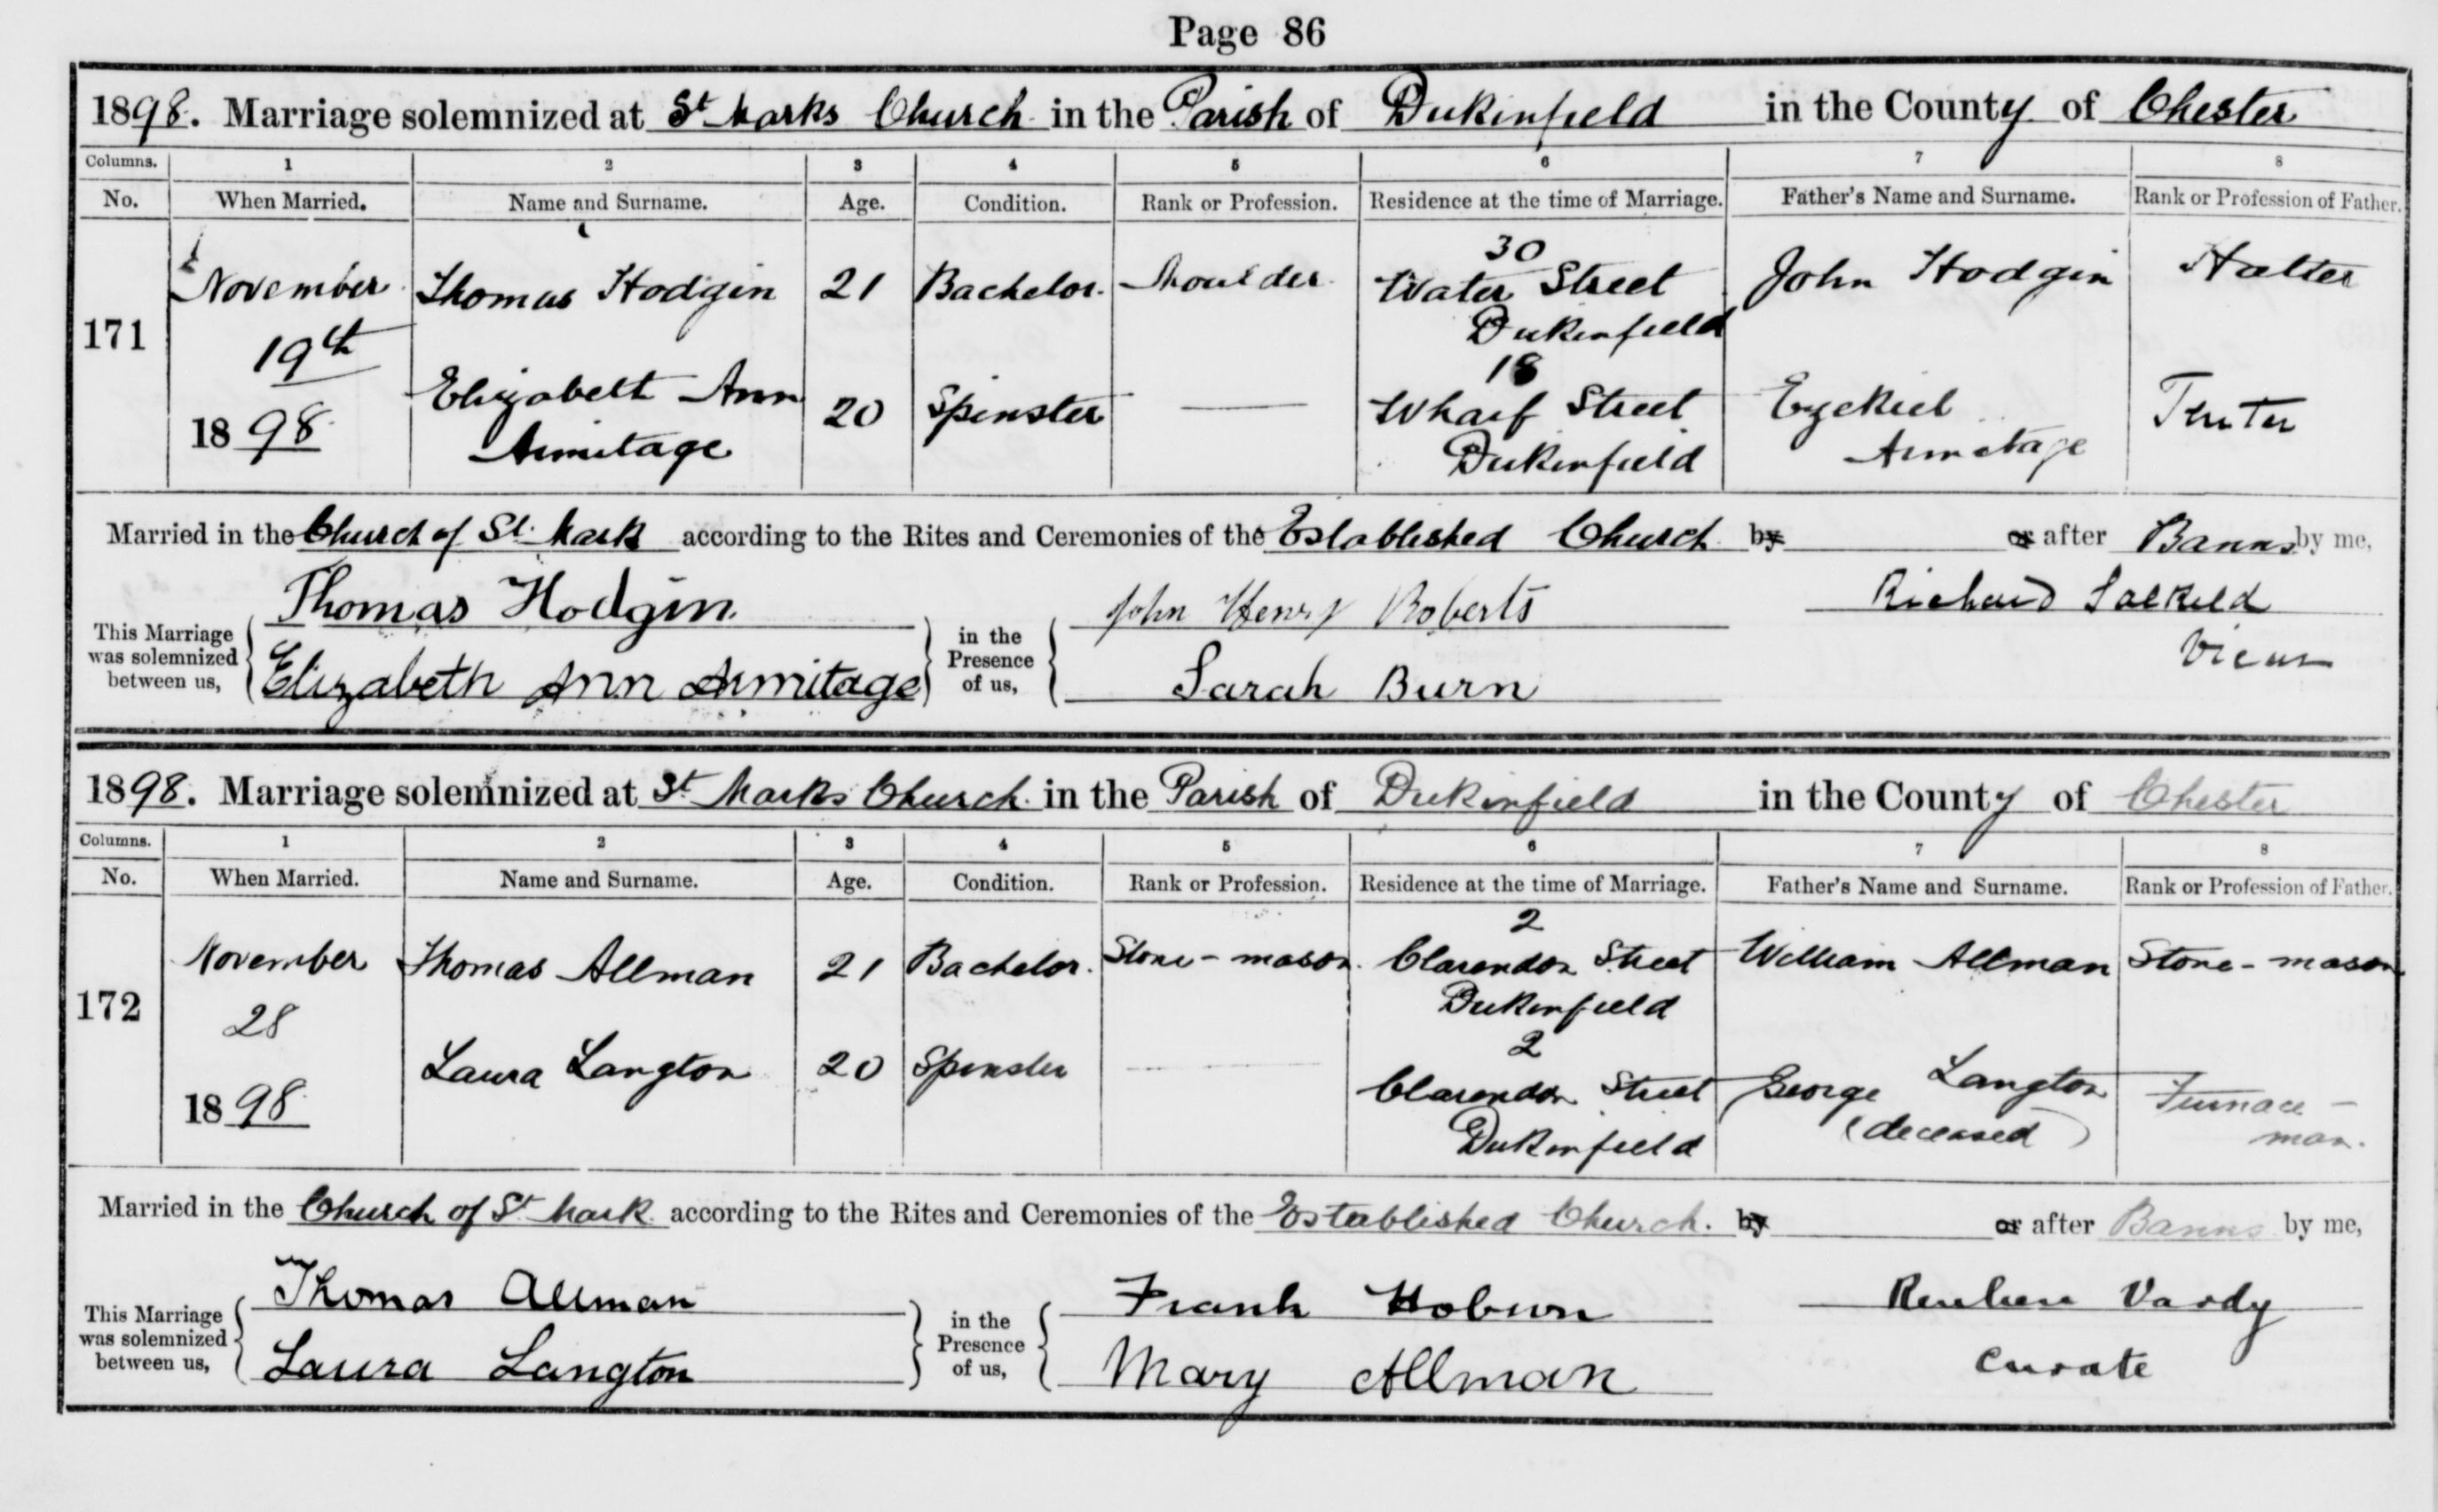 Page 86
1898. Marriage solemnized at St Marks Church in the Parish of Dukinfield in the County of Chester
Columns. 1 2 3 4 5 6 7 8
No. When Married. Name and Surname. Age. Condition. Rank or Profession. Residence at the time of Marriage. Father's Name and Surname. Rank or Profession of Father.
171 November 19th 1898 Thomas Hodgin 21 Bachelor Moulder 30 Water Street Dukinfield John Hodgin Hatter
Elizabeth Ann Armitage 20 Spinster — 18 Wharf Street Dukinfield Ezekiel Armitage Tenter
Married in the Church of St. Mark according to the Rites and Ceremonies of the Established Church by or after Banns by me,
This Marriage was solemnized between us, Thomas Hodgin Elizabeth Ann Armitage in the Presence of us, John Henry Roberts Sarah Burn Richard Salkeld Vicar
1898. Marriage solemnized at St Marks Church in the Parish of Dukinfield in the County of Chester
Columns. 1 2 3 4 5 6 7 8
No. When Married. Name and Surname. Age. Condition. Rank or Profession. Residence at the time of Marriage. Father's Name and Surname. Rank or Profession of Father.
172 November 28 1898 Thomas Allman 21 Bachelor Stone-mason 2 Clarendon Street Dukinfield William Allman Stone-mason
Laura Langton 20 Spinster — 2 Clarendon Street Dukinfield George Langton (deceased) Furnace-man.
Married in the Church of St Mark according to the Rites and Ceremonies of the Established Church. by or after Banns by me,
This Marriage was solemnized between us, Thomas Allman Laura Langton in the Presence of us, Frank Mary Allman Reuben Vardy Curate